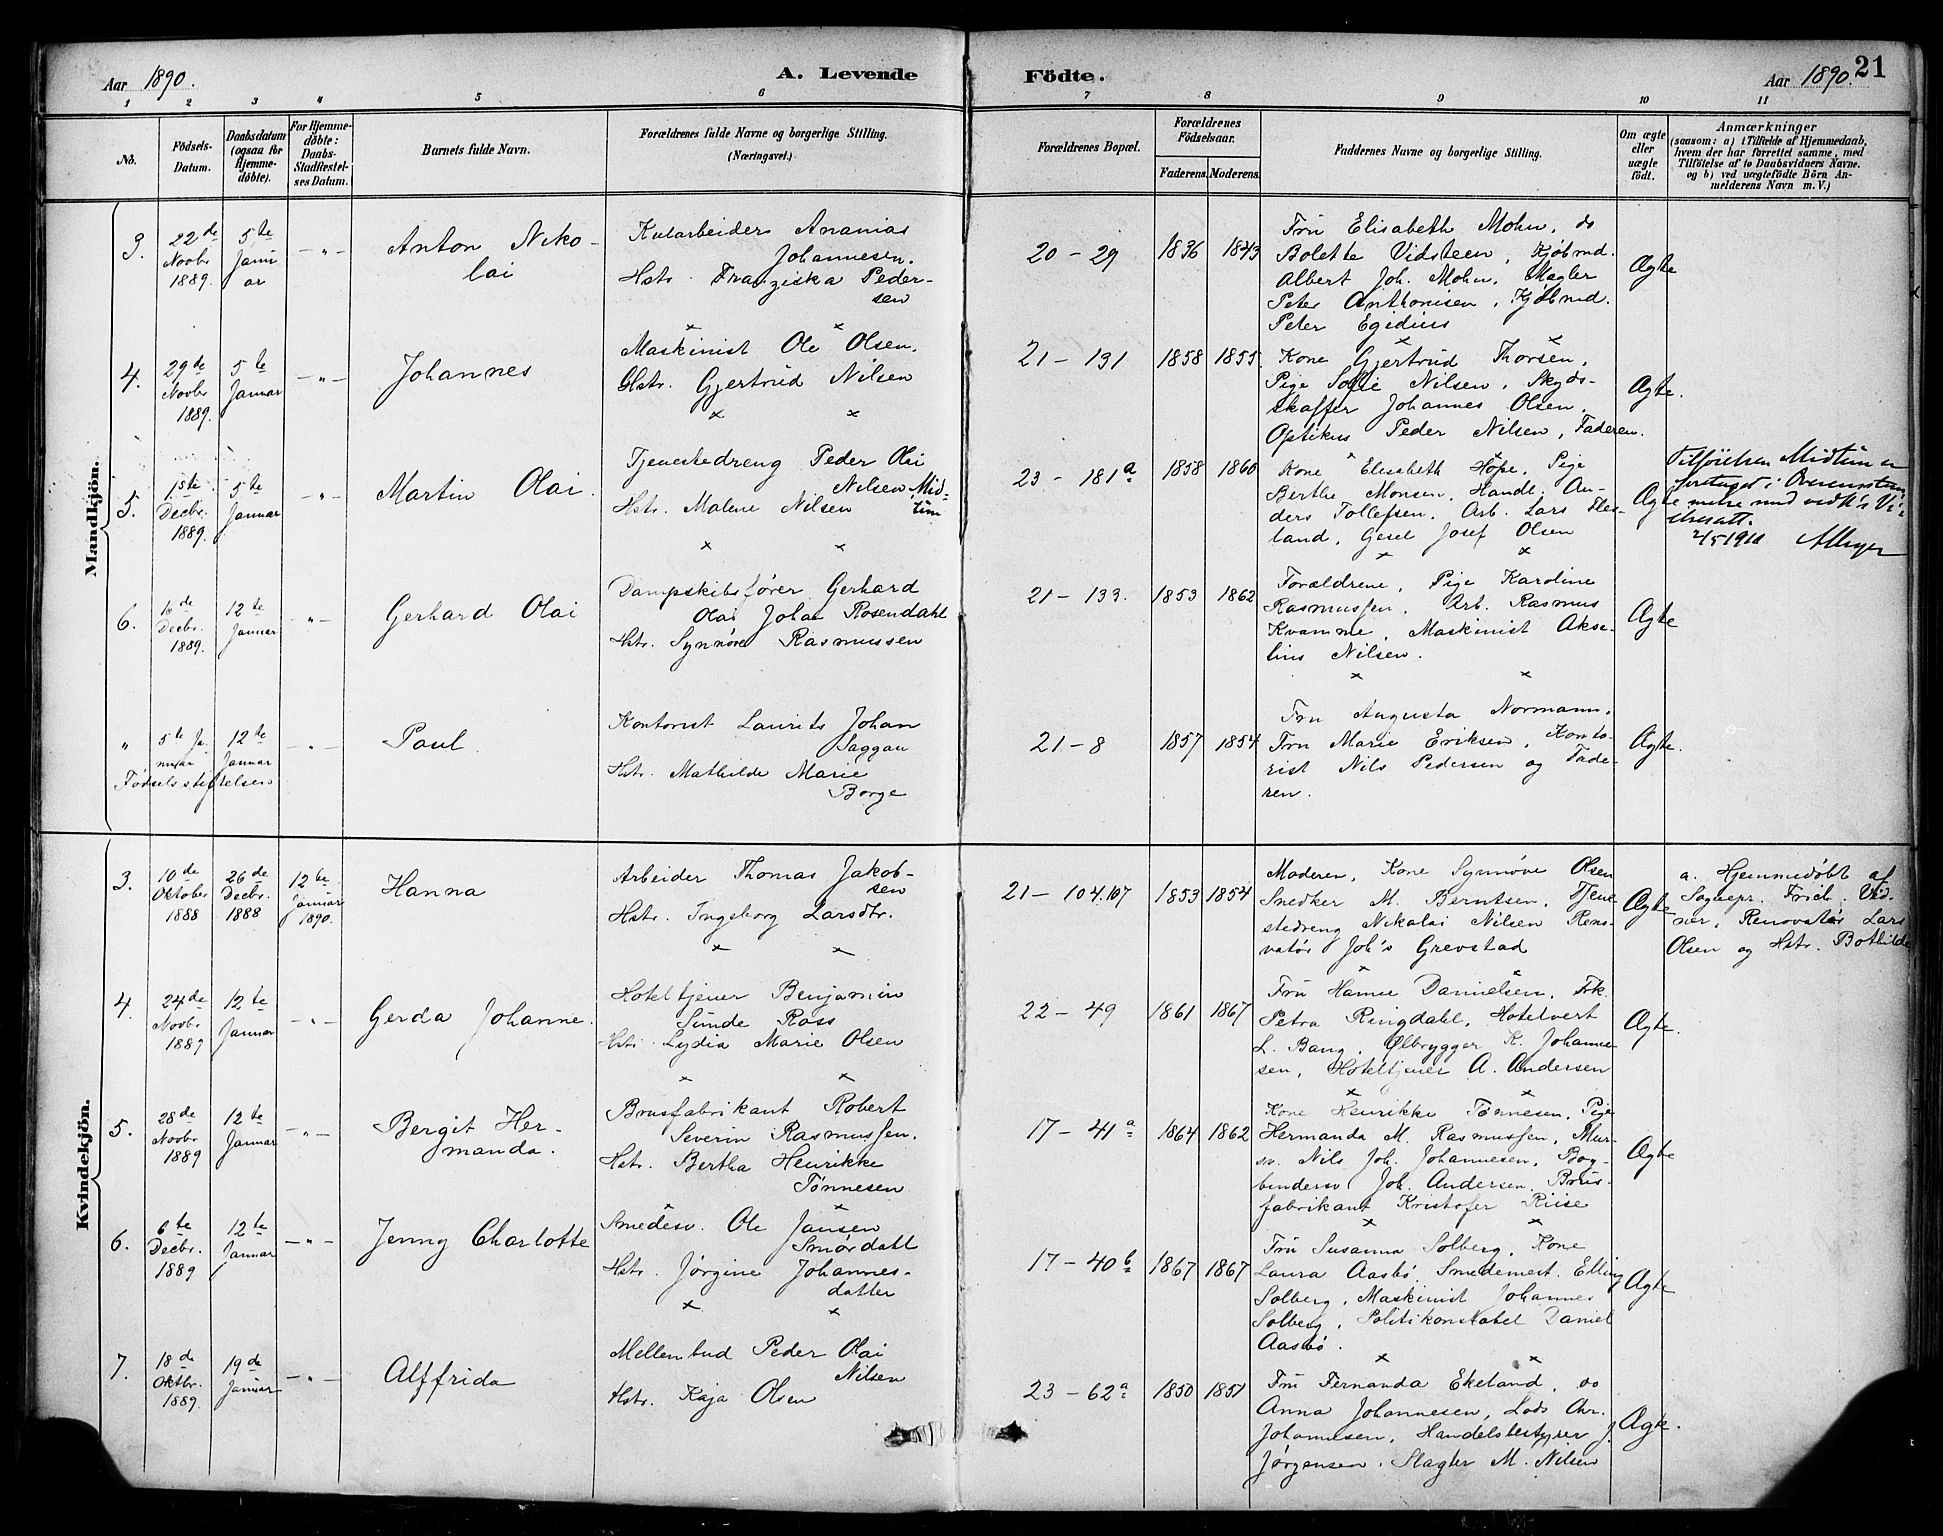 Aar 1890.
A. Levende Födte.
Aar 1890. 21
1 2 3 4 5 6 7 8 9 10 11
No.
Födsels-
Datum.
Daabsdatum
(ogsaa for
Hjemme-
döbte).
For Hjemme-
döbte:
Daabs-
Stadfæstel-
ses Datum.
Barnets fulde Navn.
Forældrenes fulde Navne og borgerlige Stilling.
(Næringsvei.)
Forældrenes Bopæl.
Forældrenes
Födselsaar.
Faderens. Moderens.
Faddernes Navne og borgerlige Stilling.
Om ægte
eller
uægte
födt.
Anmærkninger
(saasom: a) i Tilfælde af Hjemmedaab,
hvem der har forrettet samme, med
Tilföielse af to Daabsvidners Navne.
og b) ved uægtefödte Börn An-
melderens Navn m. V.)
Mandkjön.
3.
22de
Novbr
1889.
5te
Janu
ar
— „ —
Anton Niko-
lai
Kularbeider Ananias
Johannesen.
Hstr. Franziska Peder-
sen
20 – 29
1836 1843
Fru Elisabeth Mohn, do
Bolette Vidsteen, Kjøbmd.
Albert Joh. Mohn, Mægler
Peter Anthonisen, Kjøbmd.
Peter Egidius
Ægte
4.
29de
Novbr
1889.
5te
Januar
— „ —
Johannes
Maskinist Ole Olsen.
Hstr. Gjertrud Nilsen
21 – 131
1858 1855.
Kone Gjertrud Thorsen,
Pige Sofie Nilsen, Skyds-
skaffer Johannes Olsen,
Optikus Peder Nilsen, Faderen.
Ægte.
5.
1ste
Decbr.
1889.
5te
Januar
— „ —
Martin Olai.
Tjenestedreng Peder Olai
Nilsen Mid-
tun
Hstr. Malene Nilsen
23 – 181a
1858 1860
Kone Elisabeth Hope, Pige
Berthe Monsen, Handl. An-
ders Tollefsen, Arb. Lars Fles-
land, Gesel Josef Olsen
Ægte
Tilføielsen Midtun er
foretaget i Overensstem-
melse med vedk's Vi-
elsesatt.
2/5 1910
6.
10de
Decbr.
1889.
12te
Januar
— „ —
Gerhard Olai
Dampskibsfører Gerhard
Olai Johan Rosendahl
Hstr. Synnøve Rasmussen
21 – 133.
1853 1862
Forældrene, Pige Karoline
Rasmussen, Arb. Rasmus
Kvamme, Maskinist Akse-
lius Nilsen.
Ægte
„
5te Ja-
nuar
12te
Januar
— „ —
Födselsstiftelsen
Paul.
Kontorist Laurits Johan
Saggau
Hstr. Mathilde Marie
Borge
21 – 8
1857 1854
Fru Augusta Normann,
Fru Marie Eriksen, Konto-
rist Nils Pedersen og Fade-
ren.
Ægte.
Kvindekjön.
3.
10de
Oktober
1888
26de
Decbr.
1888
12te
Januar
1890.
Hanna
Arbeider Thomas Jakob-
sen
Hstr. Ingeborg Larsdtr.
21 – 104.107
1853 1854
Moderen, Kone Synnøve Olsen
Snedker M. Berntsen, Tjene
stedreng Nikolai Nilsen Reno-
vatør Joh's Grevstad
Ægte
a. Hjemmedøbt af
Sognepr. Frich. Vid-
ner, Renovatør Lars
Olsen og Hstr. Bothilde
4.
24de
Novbr
1889
12te
Januar
— „ —
Gerda Johanne.
Hoteltjener Benjamin
Sunde Ross
Hstr. Lydia Marie Olsen
22 – 49
1861 1867
Fru Hanne Danielsen, Frk.
Petra Ringdahl, Hotelvert
L. Bang, Ølbrygger K. Johanne-
sen, Hoteltjener A. Andersen
Ægte.
5.
28de
Novbr
1889
12te
Januar
— „ —
Bergit Her-
manda.
Brusfabrikant Robert
Severin Rasmussen.
Hstr. Bertha Henrikke
Tønnesen
17 – 41a
1864 1862
Kone Henrikke Tønnesen, Pige
Hermanda M. Rasmussen, Mur-
sv. Nils Joh. Johannesen, Bog-
bindersv. Joh. Andersen, Brus-
fabrikant Kristofer Riise
Ægte
6.
6te
Decbr.
1889
12te
Januar
— „ —
Jenny Charlotte
Smedesv. Ole Jansen
Smørdahl
Hstr. Jørgine Johannes-
datter
17 – 40b
1867 1867
Fru Susanna Solberg, Kone
Laura Aasbø, Smedemest. Elling
Solberg, Maskinist Johannes
Solberg, Politikonstabel Daniel
Aasbø.
Ægte
7.
18de
Oktbr.
1889.
19de
Januar
— „ —
Alffrida
Mellembud Peder Olai
Nilsen
Hstr. Kaja Olsen
23 – 62a
1850 1851
Fru Fernanda Ekeland, do
Anna Johannesen, Lods Chr.
Johannesen, Handelsbestyrer J.
Jørgensen, Slagter M. Nilsen
Ægte.